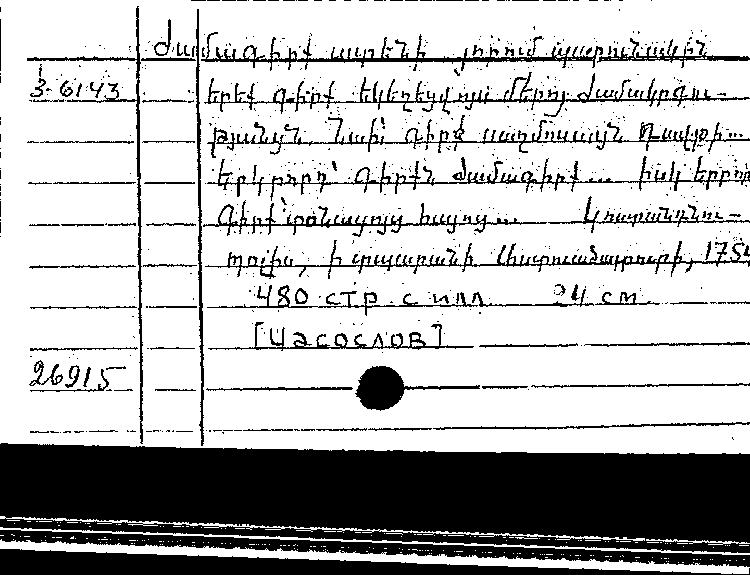 Ժամագիրք ատենի յորում պարունակին
3-6143 երեք գիրք եկեղեցւոյս մերոյ ժամակրգու-
թյանյն. Նախ՝ գիրք սաղմոսացն Դաւթի...
Երկրորդ՝ Գիրքն ժամագիրք... իսկ երրոր
Գիրք տօնացոյց հայոց... Կոստանդնու-
պոլիս, ի տպարանի Աստուածատուրի, 1754
480 стр. с илл. 24 см.
[Часослов]
26915